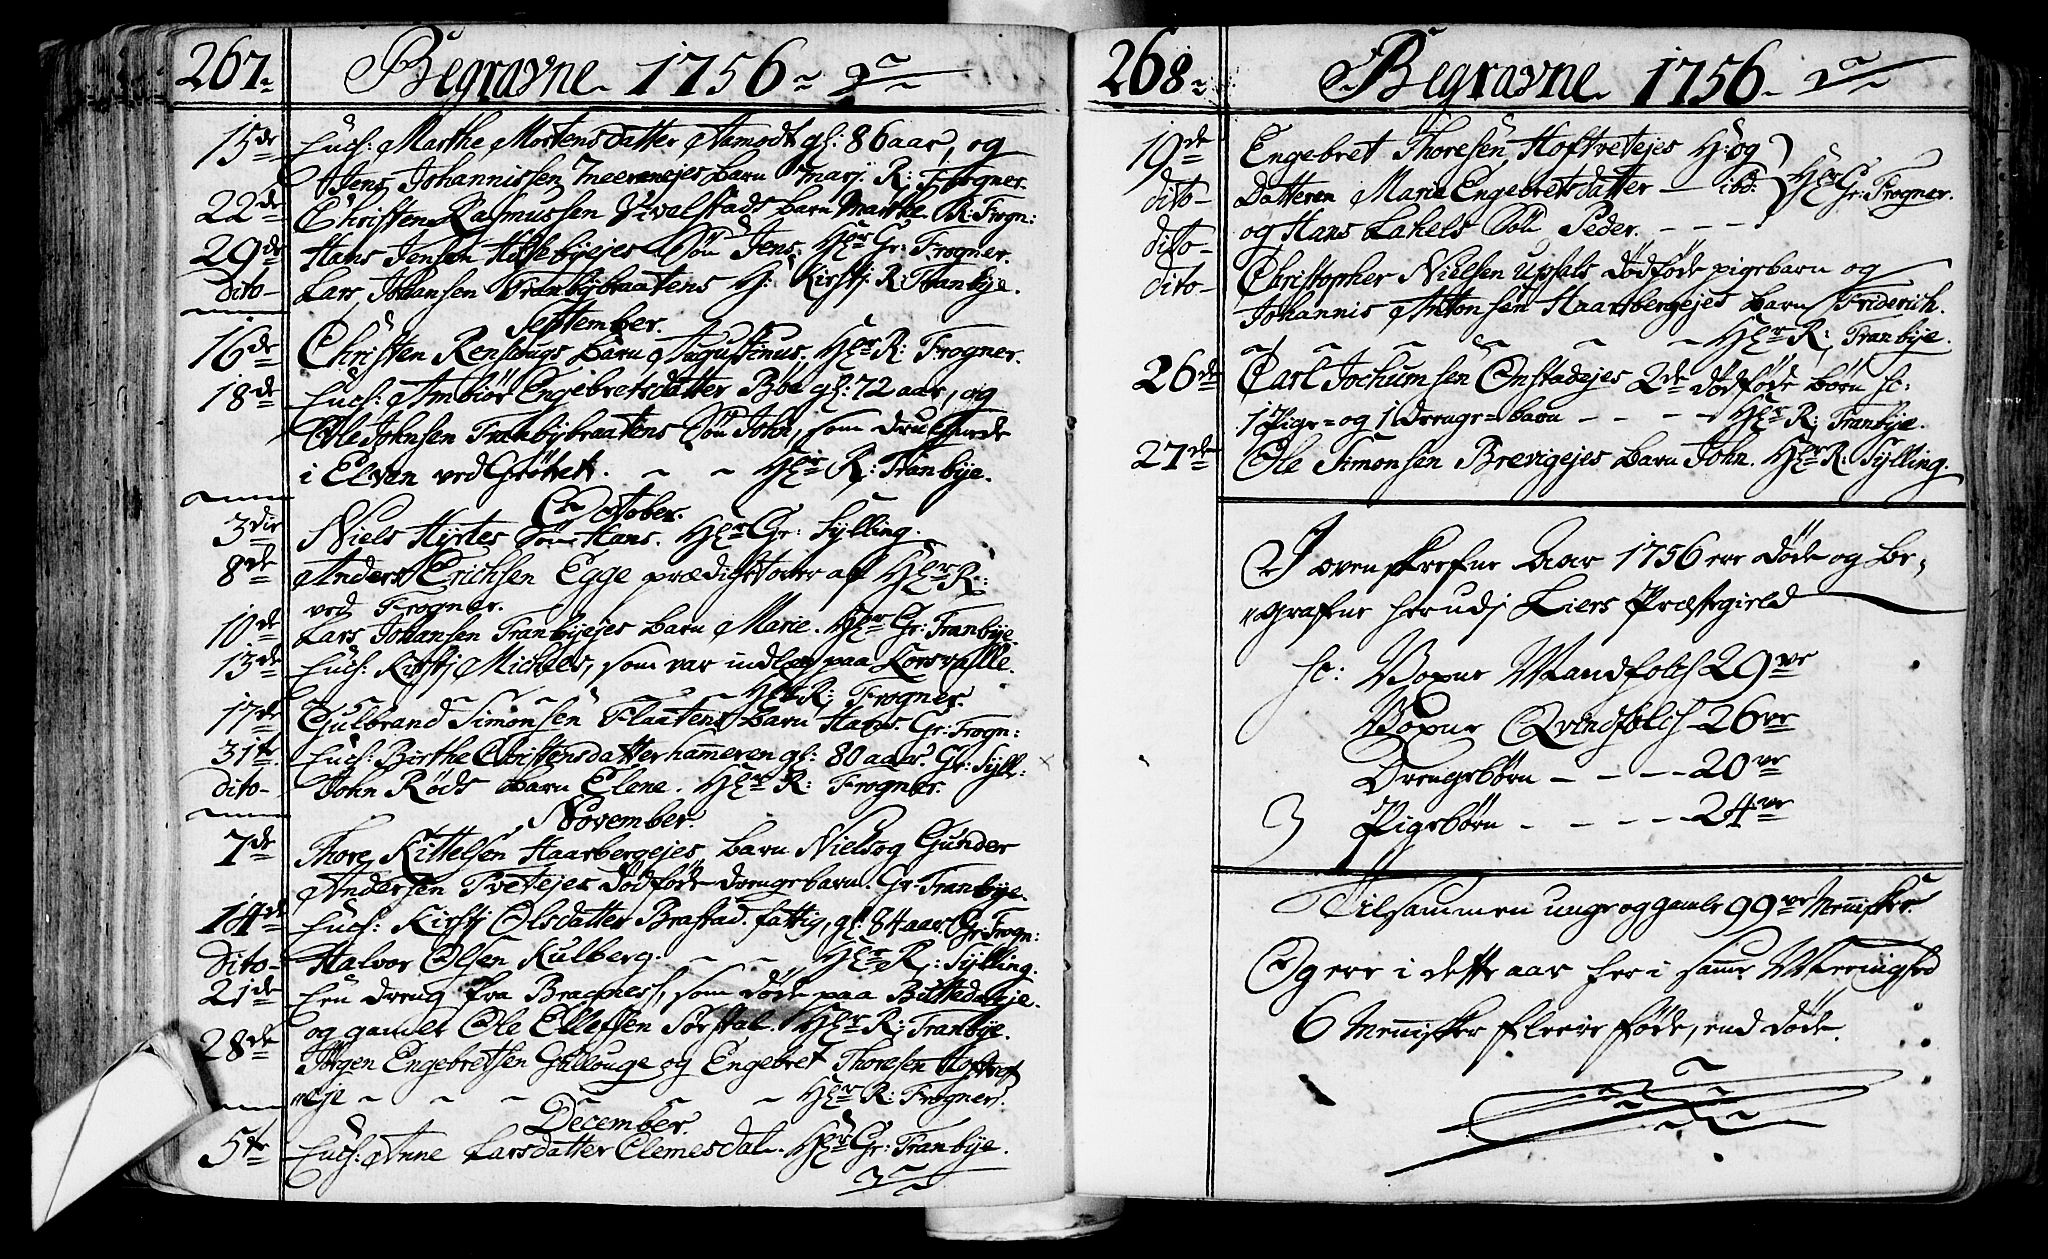 267.
Begravne 1756
15de Enck: Marthe Mortensdatter Aamodt gl: 86 aar, og
Jens Johannissen barn Marj. R: Frogner.
22de Christen Rasmussen Qvalstads barn Marthe R: Frogn:
29de Hans Jensen Hillebyejes Søn Jens. Hgr Gr: Frogner.
Dito Lars Johansen Tranbybraatens H: Kirstj R: Tranbye.
September.
16de Christen Rensougs barn Augustinus. Hgr R: Frogner.
18de Enck: Anbiør Engebretsdatter Bøe gl: 72 aar, og
Ole Johnsen Tranbybraatens Søn John, som druknede
i Elven ved Grøttet. Hgr R: Tranbye.
October.
3die Niels Hyrtes Søn Hans. Hgr Gr: Sylling.
8de Anders Erichsen Egge prædichet over af Hgr R:
ved Frogner.
10de Lars Johansen Tranbyejes barn Marie. Hgr Gr: Tranbye
13de Enck: Kirstj Michels, som var indlagt paa Korsvalle.
Hgr R: Frogner.
17de Gulbrand Simonsen Flaatens barn Hans. Gr: Frogn:
31te Enck: Birthe Christensdatter hameren gl: 80 aar. Gr: Syll:
Dito John Røds barn Elene. Hgr R: Frogner.
November.
7de Thore Kittelsen Haarbergejes barn Niels og Gunder
Andersen Tvetejes dødføde drengebarn. Gr: Tranbye.
14de Enck: Kirstj Olsdatter Brastad fattig, gl: 84 aar. Gr: Frogn:
Dito Halvor Olsen Kulberg. Hgr R: Sylling.
21de En dreng fra Bragnes, som døde paa
og gamle Ole Ellefsen Sørsdal. Hgr R: Tranbye.
28de Jørgen Engebretsen Gullouge og Engebret Thoresen Hoftvet
eje Hgr R: Frogner.
December.
5te Enck: Anne Larsdatter Clemesdal. Hgr Gr: Tranbye.
268.
Begravne 1756
19de Engebret Thoresen Hoftvetejes H: og
dito Datteren Marie Engebretsdatter ibd: Hgr Gr: Frogner.
dito og Hans Lahels Søn Peder.
dito Christopher Nielsen Upsals dødføde pigebarn og
Johannis Antonsen Haarbergejes barn Friderich.
Hgr R: Tranbye.
26de Carl Jochumsen Onstadejes 2de dødføde børn sc:
1 Pige= og 1 drenge=barn Hgr R: Tranbye.
27de Ole Simonsen Brevigejes barn John. Hgr R: Sylling.
I ovenskrefne Aar 1756 ere døde og be,
grafne herudj Liers Præstegield
sc: Voxne Mandfolch 29ve
Voxne Qvindfolch 26ve
Drengebørn 20ve
Pigebørn 24ve
Tilsammen unge og gamle 99ve Menisker.
Og ere i dette aar her i samme Meenighed
6 Menisker fleere føde, end døde.